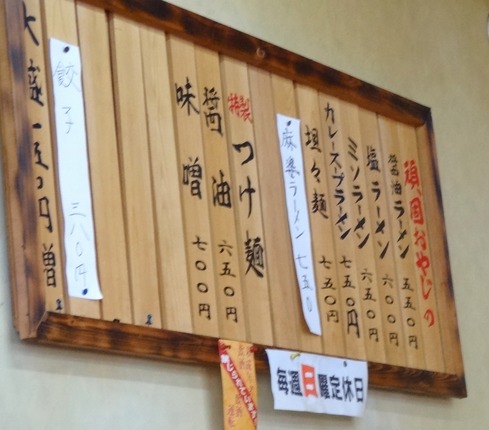 頑固おやじの
醤油ラーメン 五五〇円
塩ラーメン 六〇〇円
ミソラーメン 六五〇円
カレースープラーメン 七五〇円
坦々麺 七五〇円
麻婆ラーメン 七五〇
特製つけ麺
醤油 六五〇円
味噌 七〇〇円
餃子 三八〇円
大盛一五〇円増
毎週日曜定休日